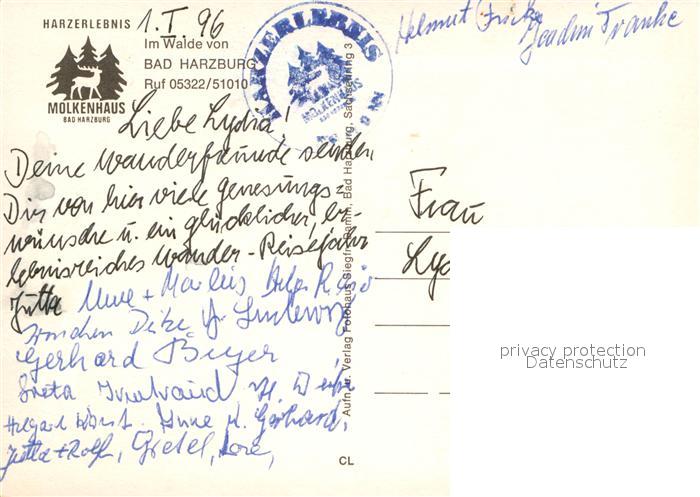 HARZERLEBNIS
MOLKENHAUS
BAD HARZBURG
1.I.96
Im Walde von
BAD HARZBURG
Ruf 05322/51010
HARZERLEBNIS
MOLKENHAUS
Helmut Fricke
Joachim Franke
Liebe Lydia!
Deine Wanderfreunde senden
Dir von hier viele Genesungs=
wünsche u. ein glückliches, er-
lebnisreiches Wander-Reisejahr
Jutta Uwe + Marlies
Gerhard Beyer
Greta Irmtraud
Anne u. Gerhard,
Jutta + Rolf, Gretel, Lore,
Aufn. u. Verlag Fotohaus Siegfr. Damm, Bad Harzburg, Sachsenring 3
CL
Frau
Lyd
privacy protection
Datenschutz